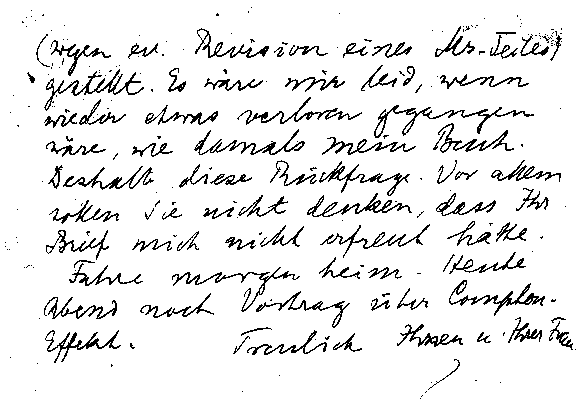 (wegen ev. Revision eines Ms-Teiles)
gestellt. Es wäre mir leid, wenn
wieder etwas verloren gegangen
wäre, wie damals mein Buch.
Deshalb diese Rückfrage. Vor allem
sollen Sie nicht denken, dass Ihr
Brief mich nicht erfreut hätte.
Fahre morgen heim. Heute
Abend noch Vortrag über Compton-
Effekt. Treulich Ihnen u. Ihrer Frau